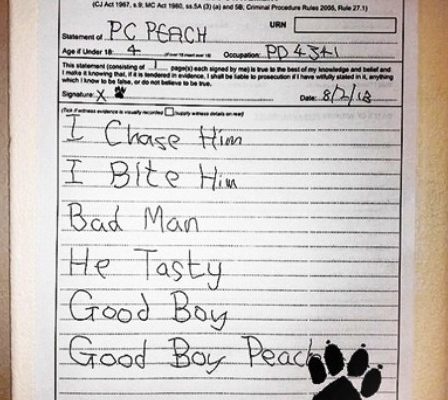 (CJ Act 1967, s.9; MC Act 1980, ss.5A (3) (a) and 5B, Criminal Procedure Rules 2005, Rule 27.1)
URN
Statement of PC PEACH
Age if Under 18: 4 (if over 18 insert over 18) Occupation: PD 4341
This statement (consisting of 1 page(s) each signed by me) is true to the best of my knowledge and belief and
I make it knowing that, if it is tendered in evidence, I shall be liable to prosecution if I have wilfully stated in it, anything
which I know to be false, or do not believe to be true.
Signature: X Date: 8/2/13
(Tick if witness evidence is visually recorded (supply witness details on rear)
I Chase Him
I Bite Him
Bad Man
He Tasty
Good Boy
Good Boy Peach